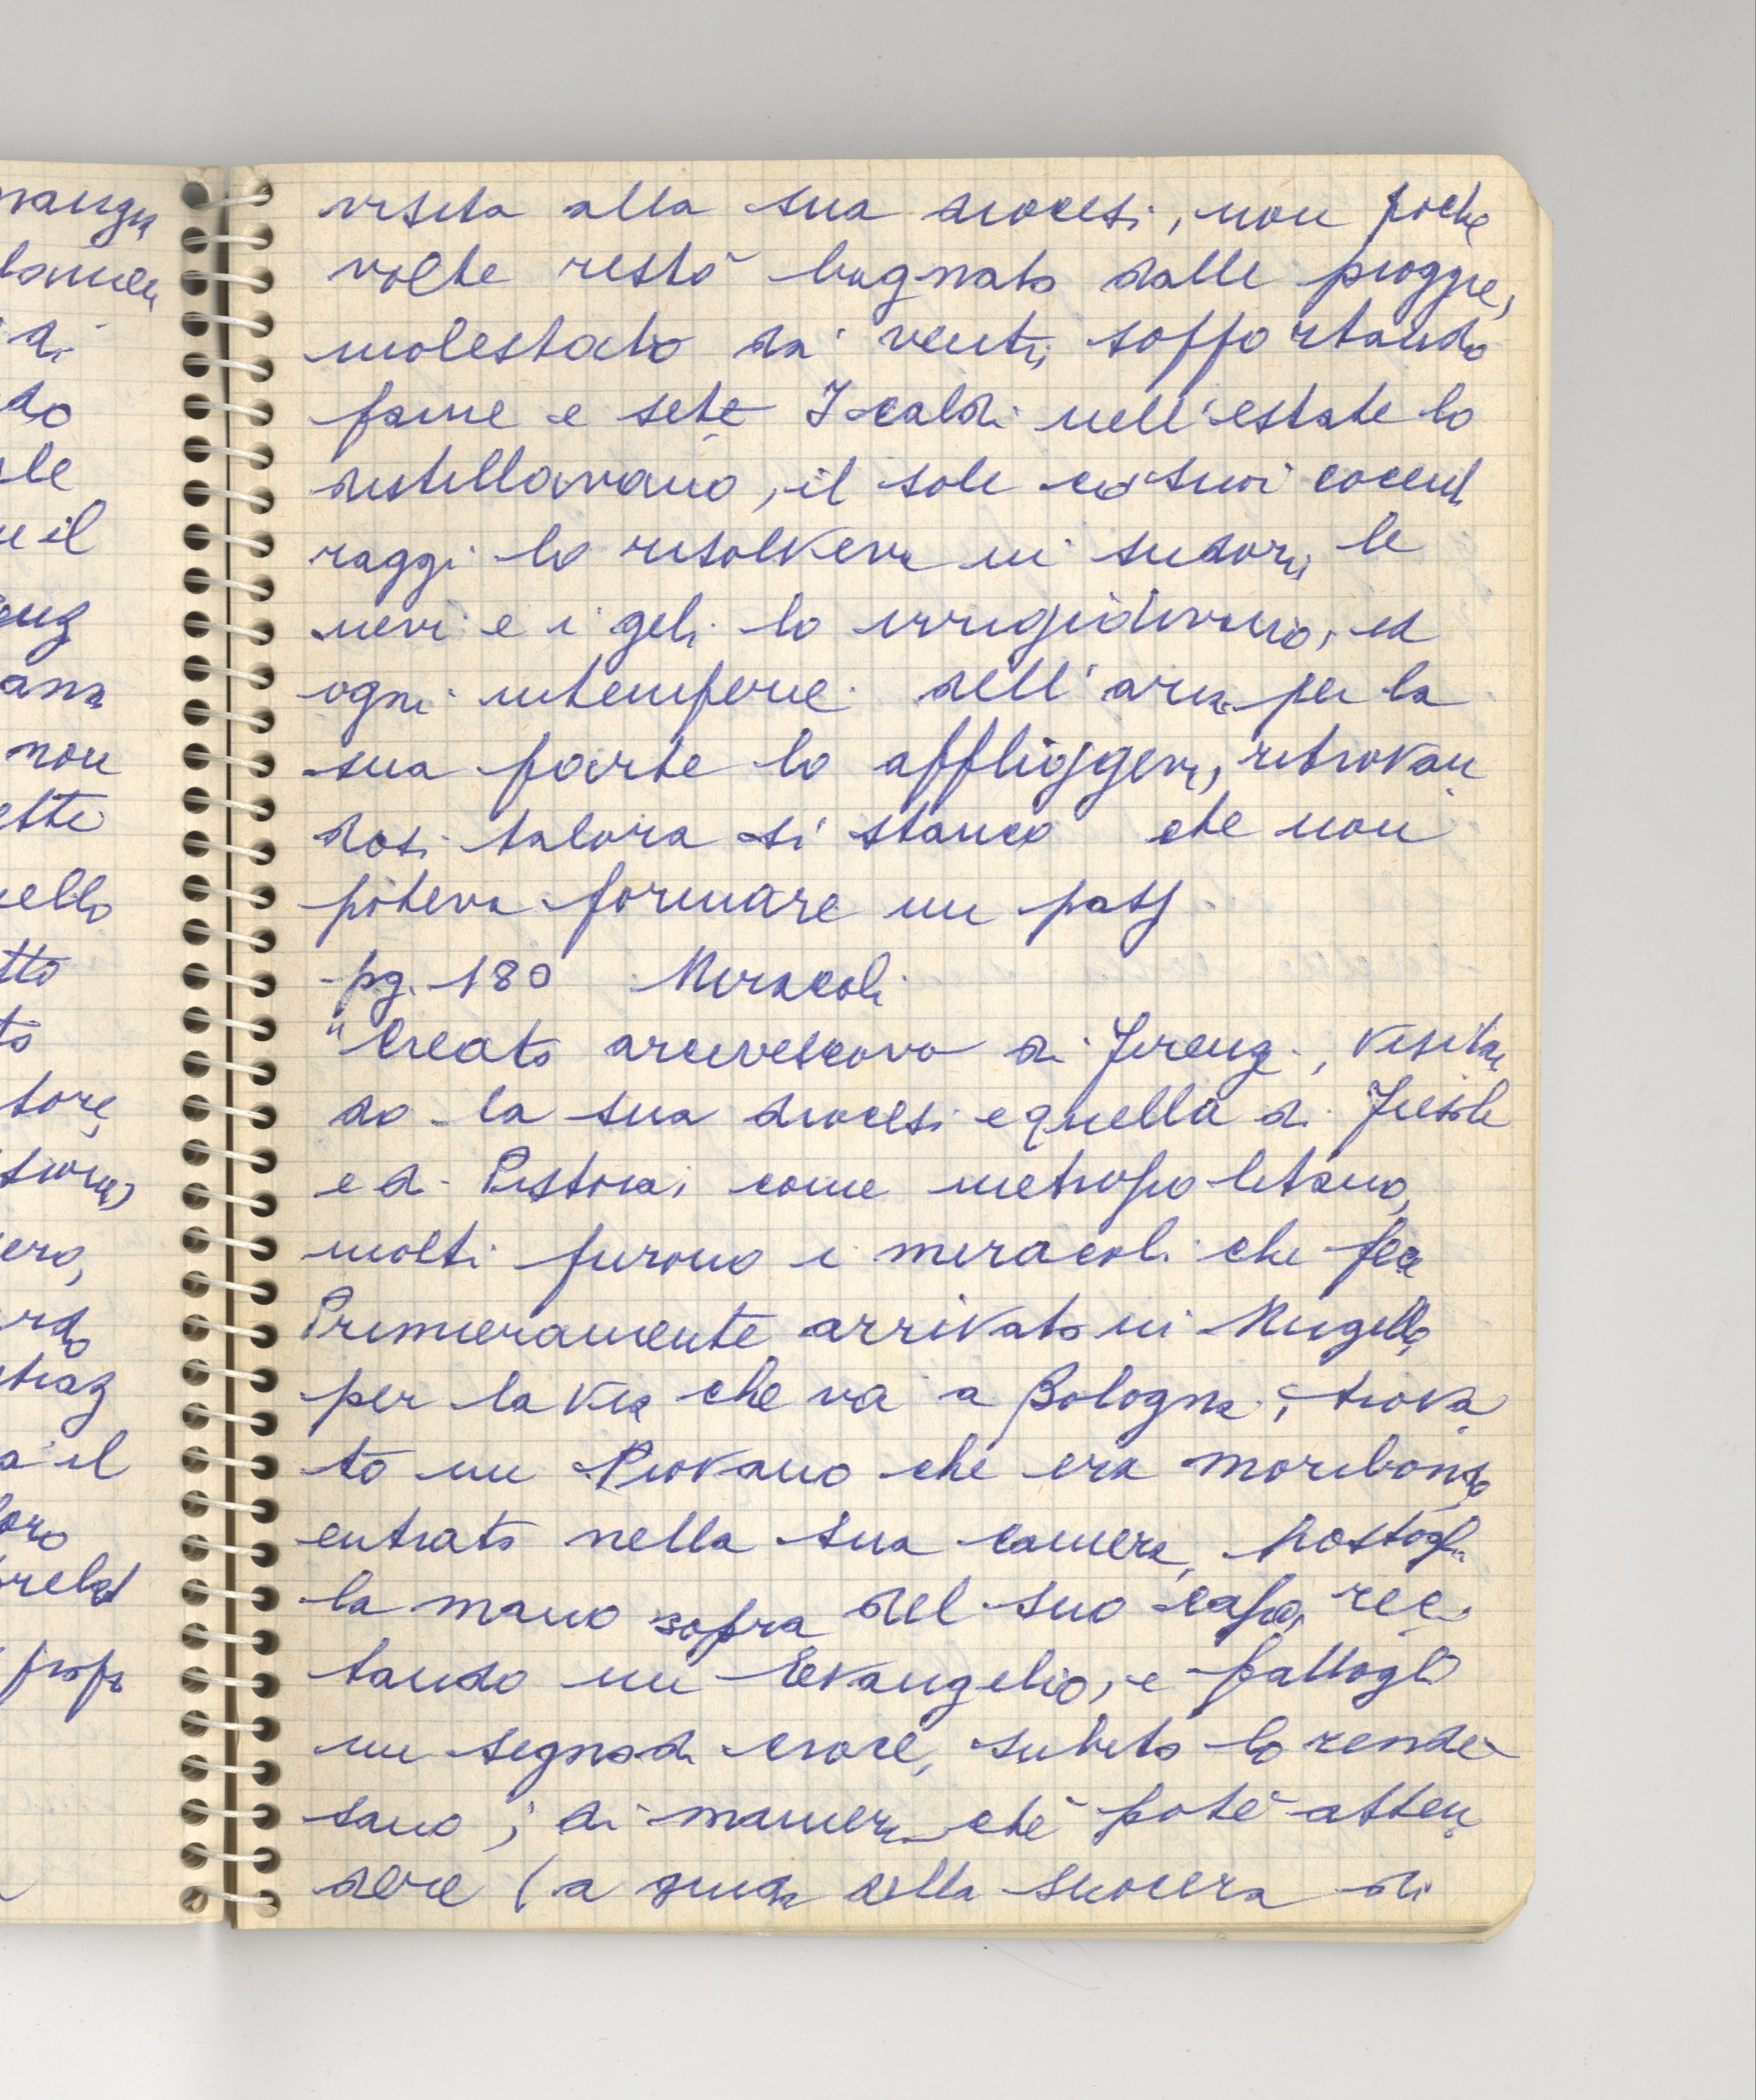 visita alla sua diocesi, non poche
volte restò bagnato dalle piogge,
molestato da' venti, sopportando
fame e sete I caldi nell'estate lo
distillavano, il sole co' suoi cocenti
raggi lo risolveva in sudori, le
nevi e i geli lo irrigidivano, ed
ogni intemperie dell'aria per la
sua parte lo affliggeva, ritrovan
dosi talora sì stanco che non
poteva formare un passo
pg. 180 Miracoli
"Creato arcivescovo di Firenze, visitan
do la sua diocesi e quella di Fiesole
e di Pistoia, come metropolitano,
molti furono i miracoli che fece
Primieramente arrivato in Mugello,
per la via che va a Bologna, trova
to un Piovano che era moribondo
entrato nella sua camera, postogli
la mano sopra del suo capo, reci
tando un Evangelio, e fattogli
un segno di croce, subito lo rende
sano; di maniera che potè atten
dere (a guida della suocera di